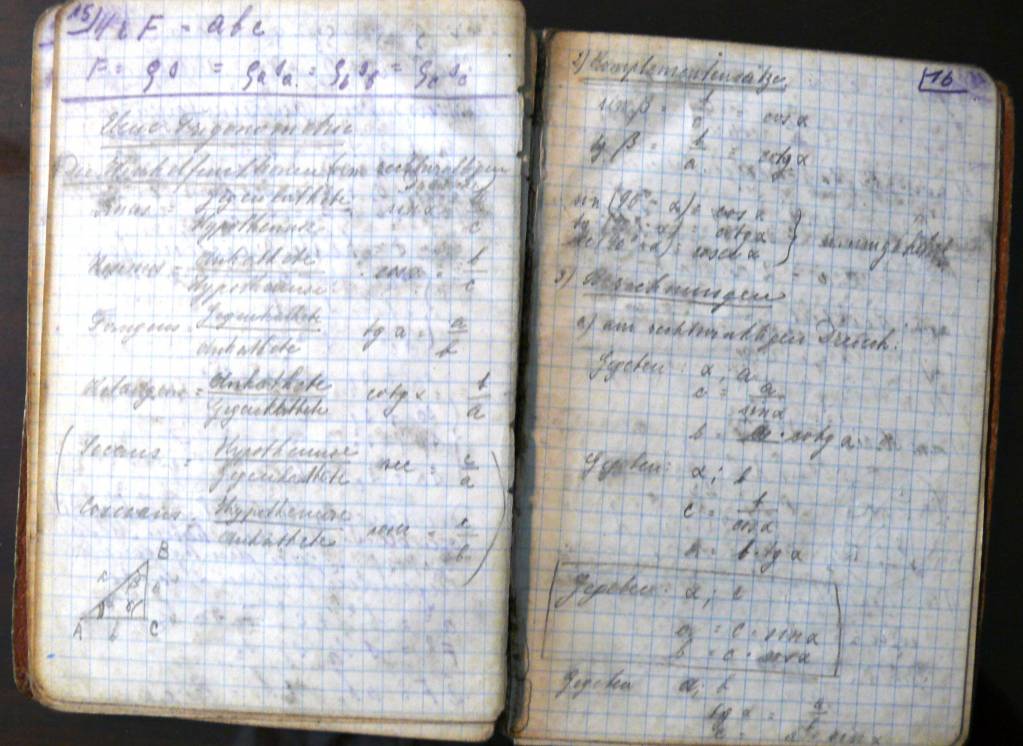 15
4rF = abc
F = ϱs = ϱₐsₐ = ϱ_b s_b = ϱ_c s_c
Ebene Trigonometrie
rechtwinkligen
Sinus = Gegenkathete / Hypothenuse sin α = a/c
Kosinus = Ankathete / Hypothenuse cos α = b/c
Tangens = Gegenkathete / Ankathete tg α = a/b
Kotangens = Ankathete / Gegenkathete cotg α = b/a
(Secans = Hypothenuse / Gegenkathete sec = c/a
Cosecans = Hypothenuse / Ankathete = c/b)
B
β
A b C
16
2) Komplementsätze
sin β = b/c = cos α
tg β = b/a = cotg α
sin (90° - α) = cos α
tg (90° - α) = cotg α
sec (90° - α) = cosec α
3) Berechnungen
a) am rechtwinkligen Dreieck:
Gegeben: α; a
c = a/sin α
b = a · cotg α
Gegeben: α; b
c = b/cos α
a = b · tg α
Gegeben: α; c
a = c · sin α
b = c · cos α
Gegeben a; b
tg α = a/b